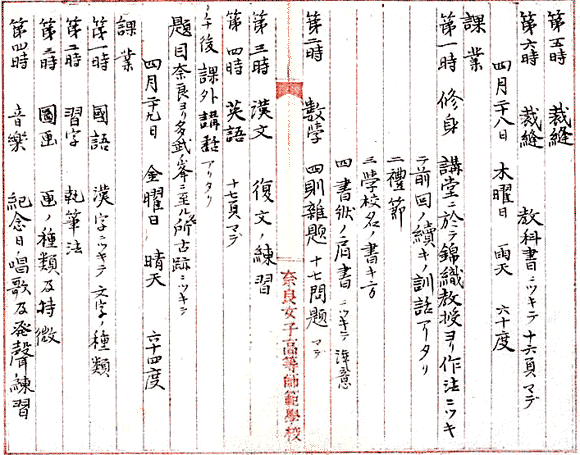 第五時 裁縫
第六時 裁縫 教科書ニツキテ十六頁マデ
四月二十八日 木曜日 雨天 六十度
課業
第一時 修身 講堂ニ於テ錦織教授ヨリ作法ニツキ
テ前回ノ續キノ訓話アリタリ
二禮節
三學校名ノ書キ方
四書狀ノ肩書ニツキテ注意
第二時 數學 四則雜題 十七問題マデ
奈良女子高等師範學校
第三時 漢文 復文ノ練習
第四時 英語 十七頁マデ
午後課外講話アリタリ
題目奈良ヨリ多武峯ニ至ル所古跡ニツキテ
四月二十九日 金曜日 晴天 六十四度
課業
第一時 國語 漢字ニツキテ文字ノ種類
第二時 習字 執筆法
第三時 圖画 画ノ種類及特徴
第四時 音樂 紀念日唱歌及発聲練習